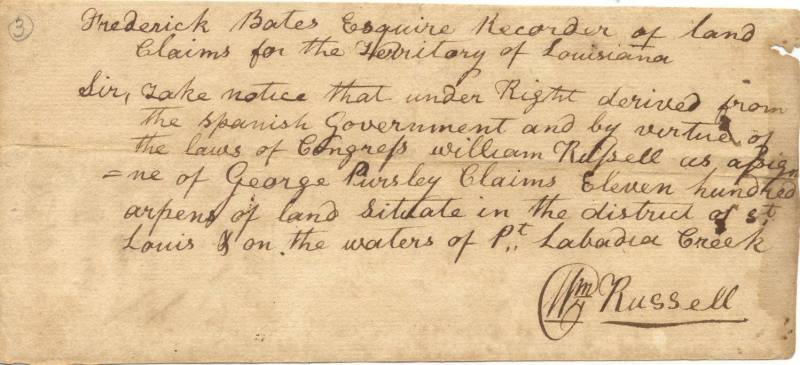 3
Frederick Bates Esquire Recorder of land
Claims for the Territory of Louisiana
Sir, Take notice that under Right derived from
the Spanish Government and by virtue of
the laws of Congress William Russell as assign
=ne of George Pursley Claims Eleven hundred
arpens of land Situate in the district of St.
Louis & on the waters of Pt. Labadia Creek
Wm Russell